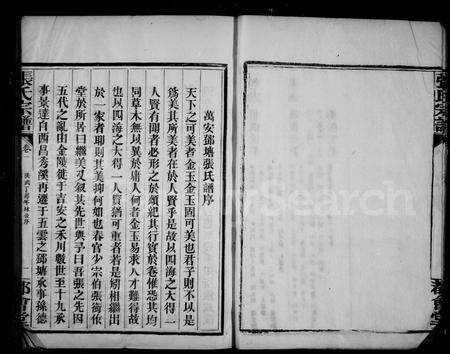 萬安鄧塘張氏譜序
天下之可美者金玉金玉固可美也君子則不以是
為美其所美者在於人賢乎是故以四海之大得一
人賢有聞者必形之於頌紀其行實於卷惟恐其均
同草木無以異於庸人何者金玉易求人才難得故
也以四海之大得一人賢猶可重者若是矧相繼出
於一家者耶則其美抑何如也春官少宗伯張衡依
堂於所居曰繼美又叙其先世與予曰吾張之先因
五代之亂由金陵徙于吉安之禾川數世至十九承
事景達自西昌秀溪再遷于五雲之鄧塘承事孫德
張氏宗譜
卷一